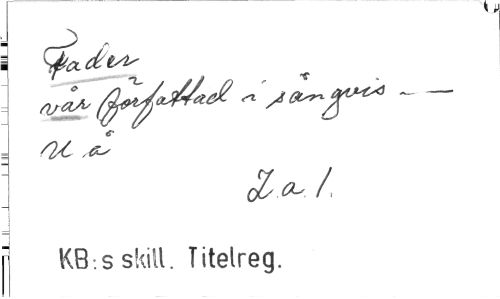 Fader
vår författad i sångvis – –
U å
Z.a.1.
KB:s skill. Titelreg.